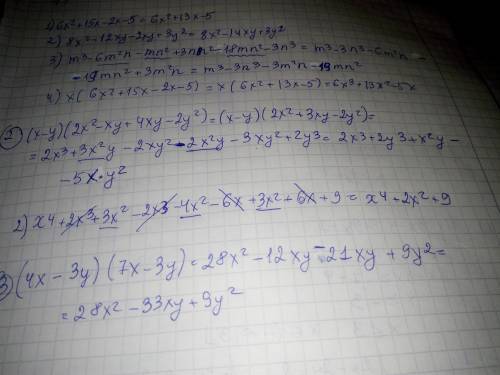 1) 6x²+15x-2x-5=6x²+13x-5
2) 8x²-12xy-2xy+3y²=8x²-14xy+3y²
3) m³-6m²n-mn²+3m²n-18mn²-3n³=m³-3n³-6m²n-
-19mn²+3m²n=m³-3n³-3m²n-19mn²
4) x(6x²+15x-2x-5)=x(6x²+13x-5)=6x³+13x²-5x
1) (x-y)(2x²-xy+4xy-2y²)=(x-y)(2x²+3xy-2y²)=
=2x³+3x²y-2xy²-2x²y-3xy²+2y³=2x³+2y³+x²y-
-5x·y²
2) x⁴+2x³+3x²-2x³-4x²-6x+3x²+6x+9=x⁴+2x²+9
3) (4x-3y)(7x-3y)=28x²-12xy-21xy+9y²=
=28x²-33xy+9y²